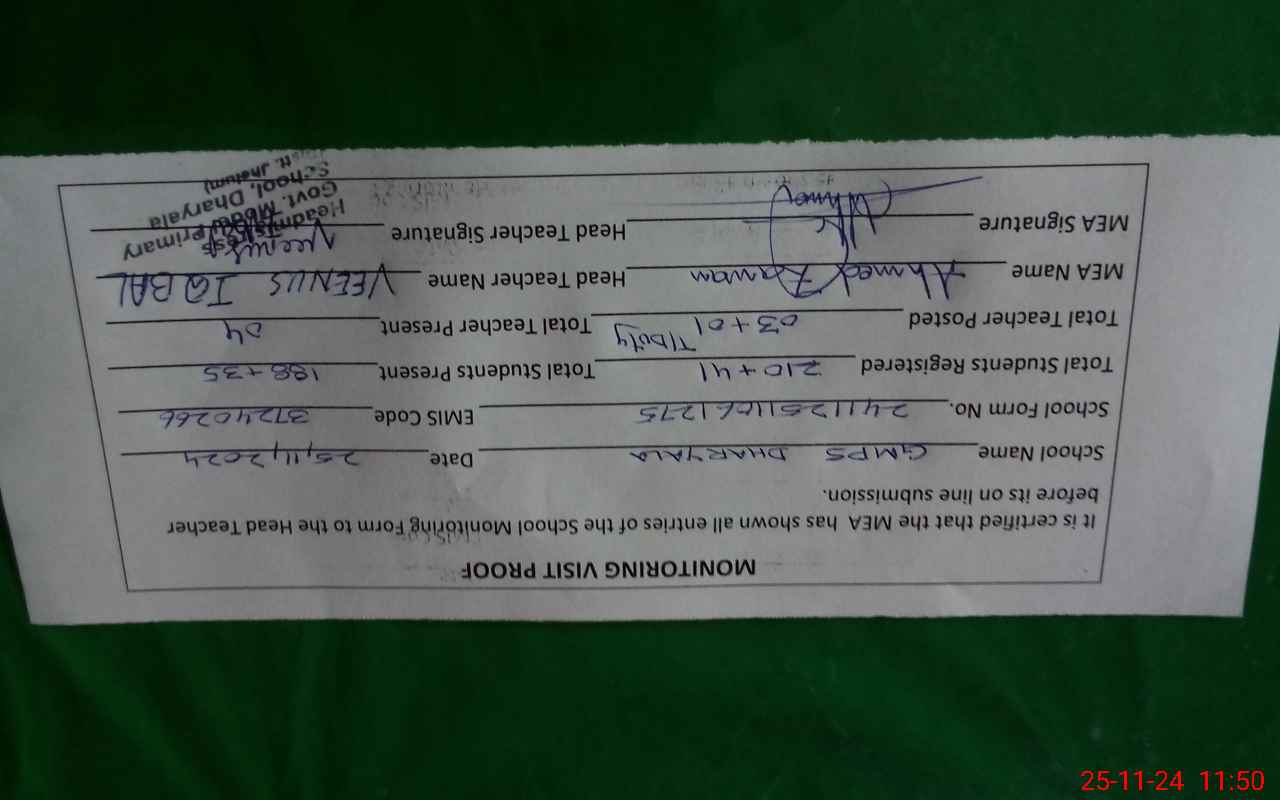 MONITORING VISIT PROOF
It is certified that the MEA has shown all entries of the School Monitoring Form to the Head Teacher
before its on line submission.
School Name GMPS DHARYALA Date 25,11,2024
School Form No. 24112511061275 EMIS Code 37240266
Total Students Registered 210+41 Total Students Present 188+35
Total Teacher Posted 03+01 T/Duty Total Teacher Present 04
MEA Name Ahmed Head Teacher Name VEENUS IQBAL
MEA Signature Head Teacher Signature Veenus
Headmistress
Govt. Model Primary
School, Dharyala
Distt. Jhelum)
25-11-24 11:50